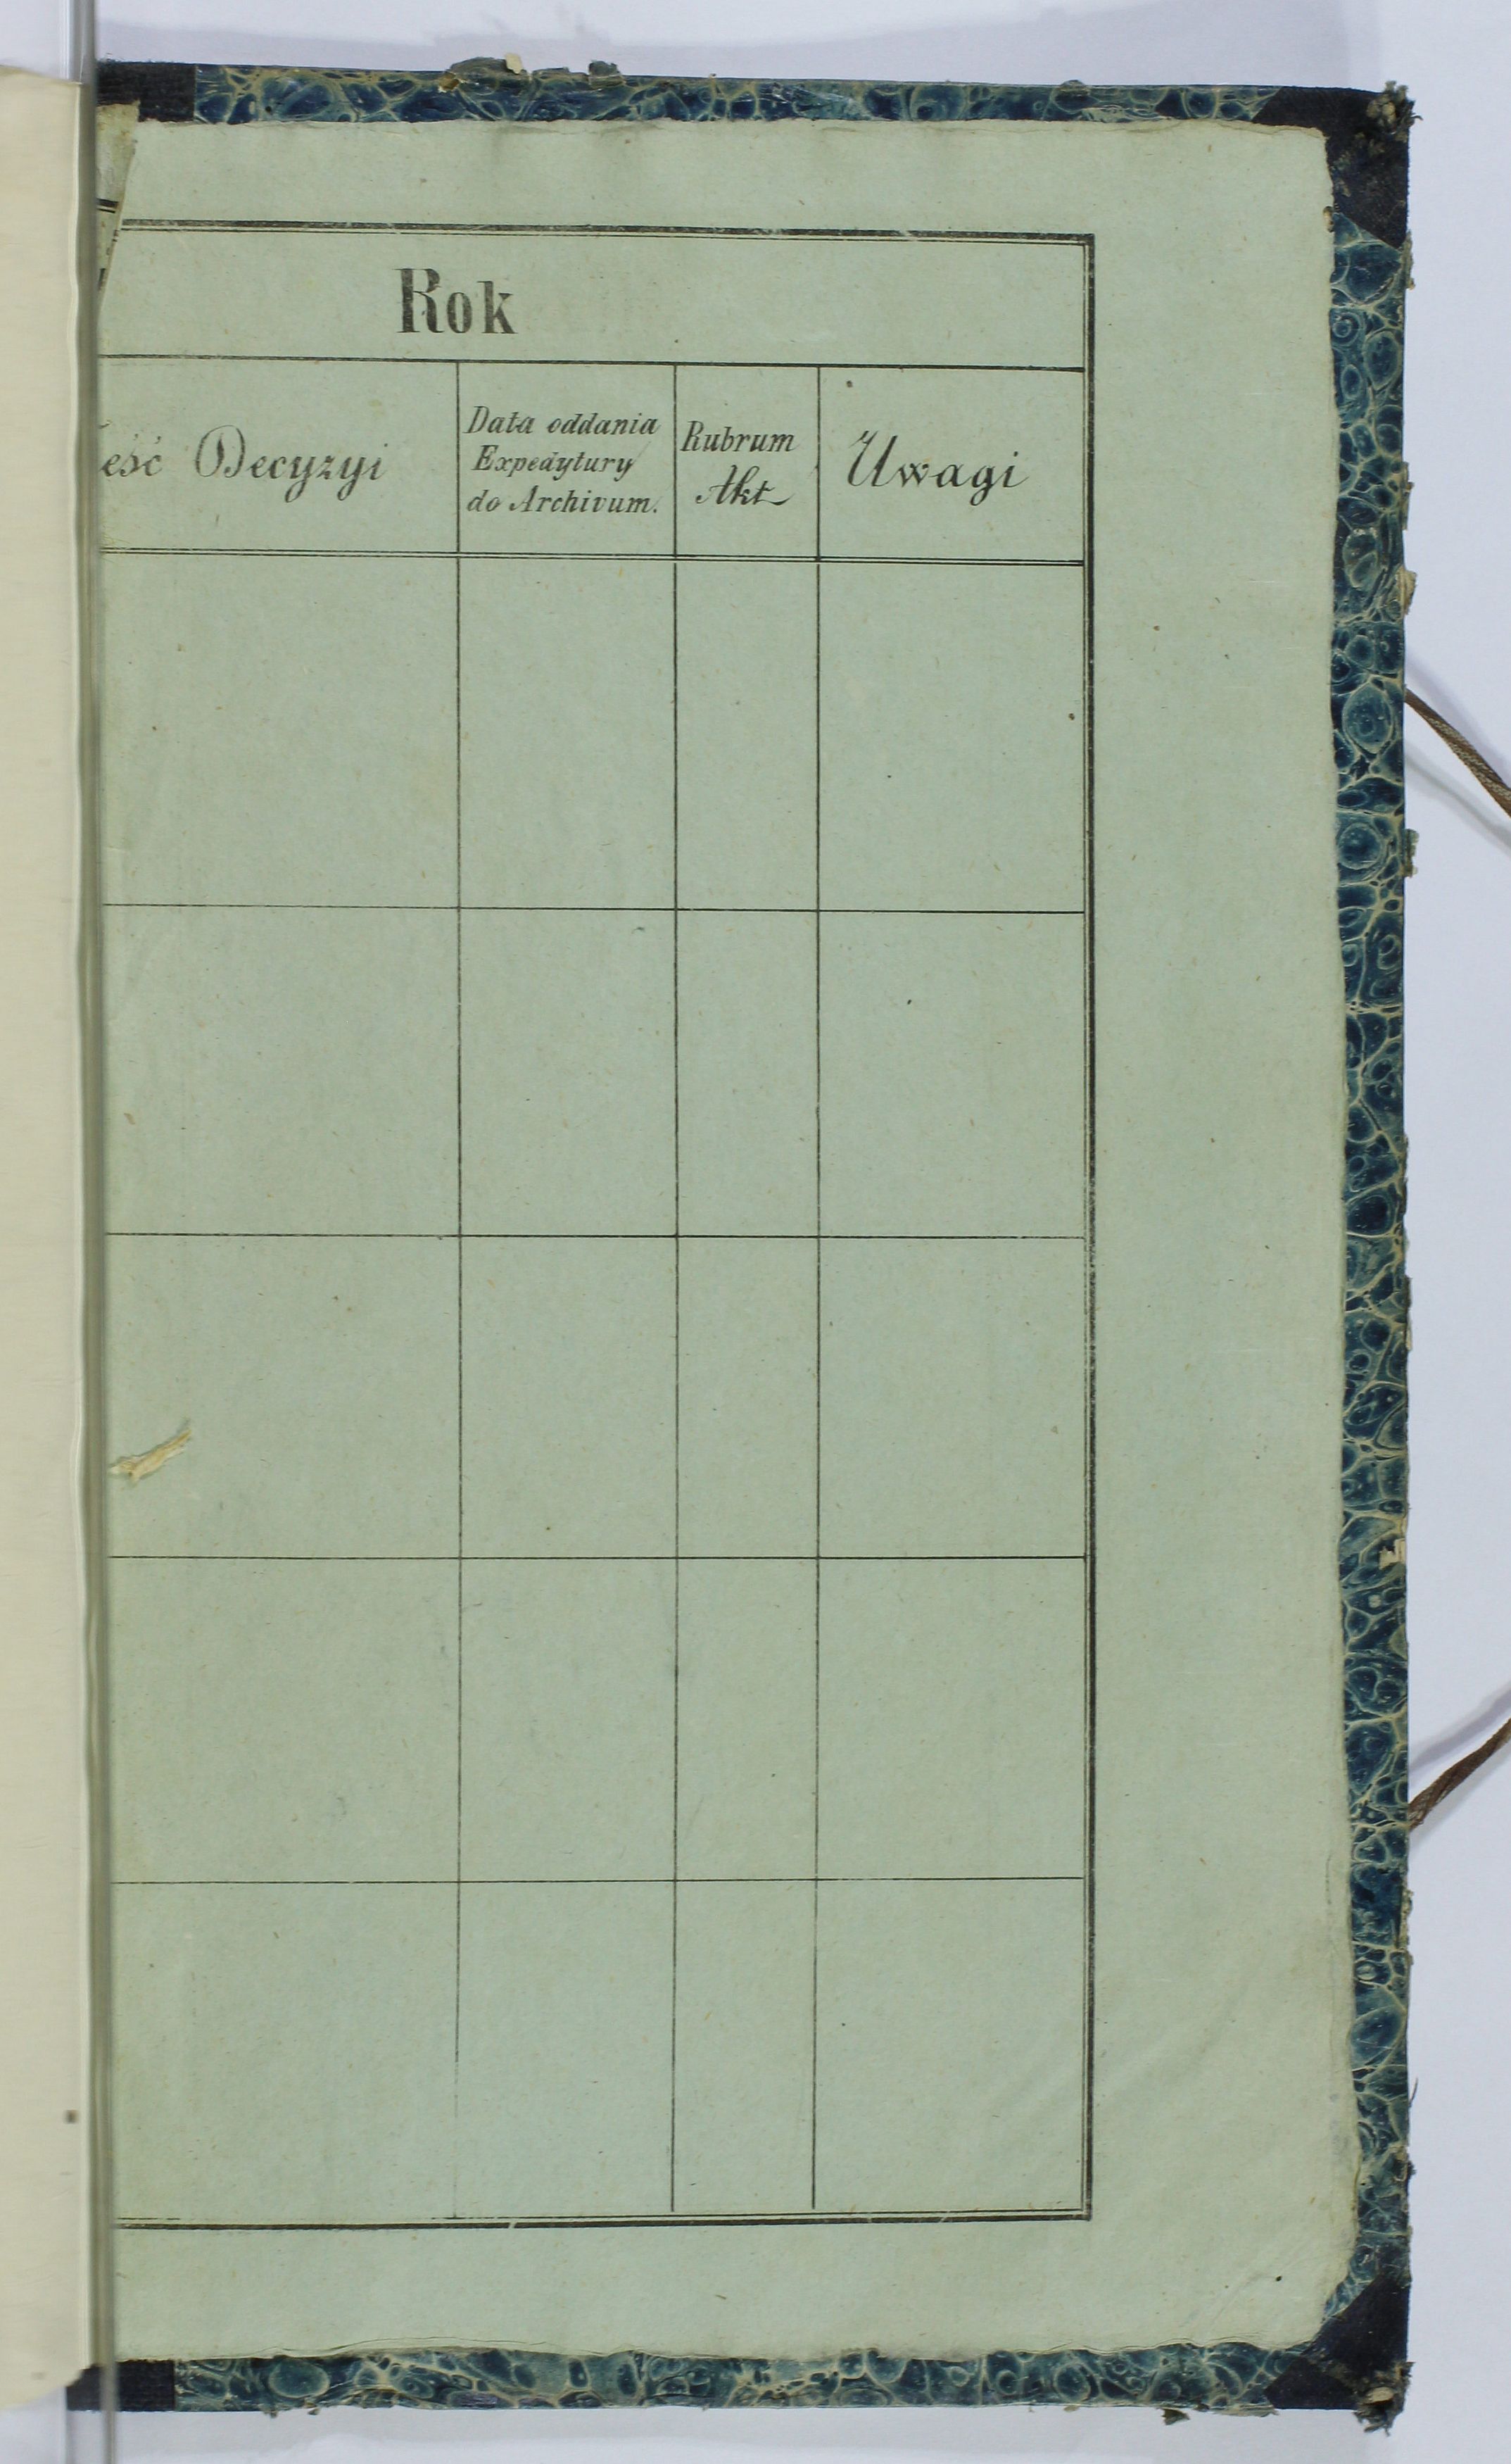 Rok
eść Decyzyi
Data oddania
Expedytury
do Archivum.
Rubrum
Akt
Uwagi